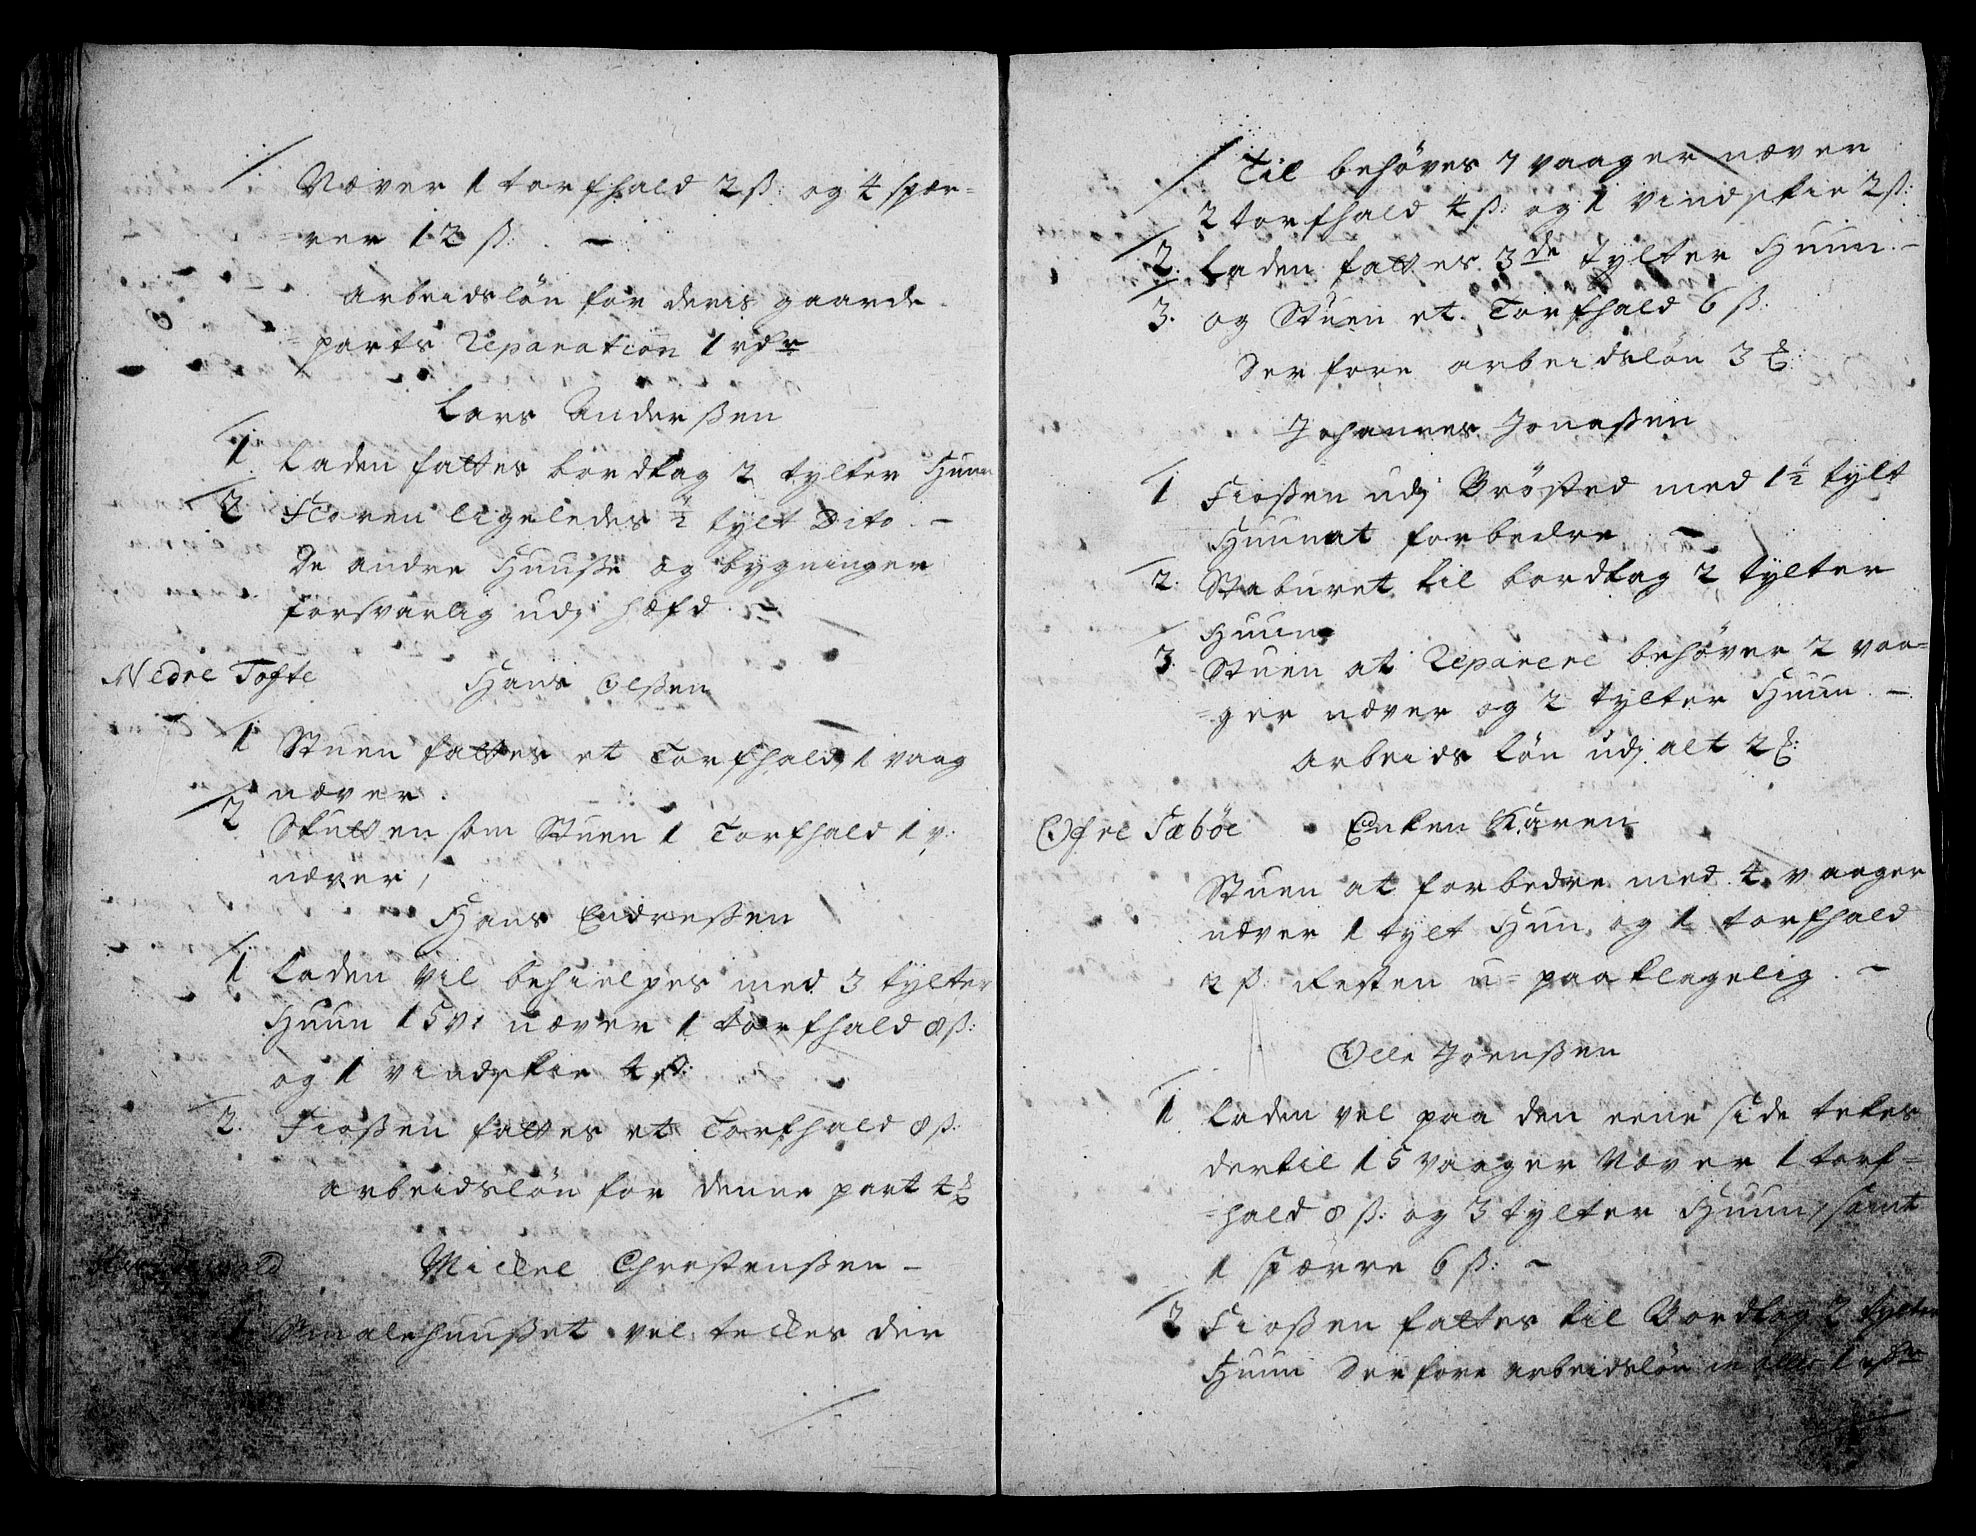 Næver 1 torfhald 2 ß: og 4 spær-
=rer 12 ß: . —
arbeidsløn for deris gaarde-
=parts Reparation 1 rdr
Lars Anderßen
1 Laden fattes bordtag 2 tylter Huun
2 Floren ligeledes ½ tylt Dito. —
De andre Huuße og bygninger
forsvarlig udj hæfd.
Nedre Tofte Hans Olßen
1 Stuen fattes et Torfhald, 1 vaag
næver.
2 Skutten som Stuen 1 Torfhald 1 v:
næver,
Hans Endreßen
1 Laden vil behielpes med 3 tylter
Huun 15 v: næver 1 torfhald 8 ß:
og 1 vindskie 4 ß:
2. Fioßen fattes et Torfhald 8 ß:
arbeidsløn for denne part 4 ₰
Mickel Chrestenßen —
1 Smalehuußet vel teckes der
Til behøves 7 vaager næver
2 torfhald 4 ß: og 1 vindskie 2 ß:
2. Laden fattes 3de tylter Huun. —
3. og Stuen et Torfhald 6 ß:
Derfore arbeidsløn 3 ₰:
Johannes Jonaßen
1 Fioßen udj Brøsted med 1½ tylt
Huun at forbedre . —
2. Staburet til bordtag 2 tylter
Huun
3. Stuen at Reparere behøver 2 vaa=
=ger næver og 2 tylter Huun. —
Arbeids løn udj alt 2 ₰:
Øfre Sæbøe Enken Karen
Stuen at forbedre med 4 vaager
næver 1 tylt Hun og 1 torfhald
2 ß: Resten u=paaklagelig. —
Olle Joenßen
1. Laden vel paa den eene side tekes
dertil 15 vaager Næver 1 torf=
=hald 8 ß: og 3 tylter Huun, samt
1 spærre 6 ß: —
2 Fioßen fattes til Bordtag 2 tylter
Huun Derfore arbeidsløn 1 rdr